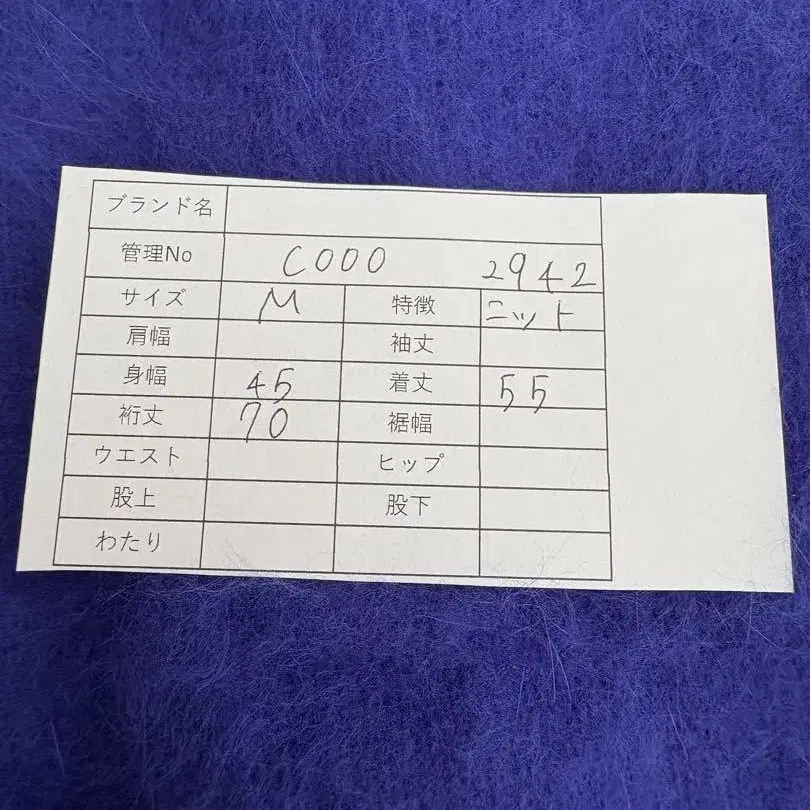 ブランド名
管理No C000 2942
サイズ M 特徴 ニット
肩幅 袖丈
身幅 45 着丈 55
裄丈 70 裾幅
ウエスト ヒップ
股上 股下
わたり